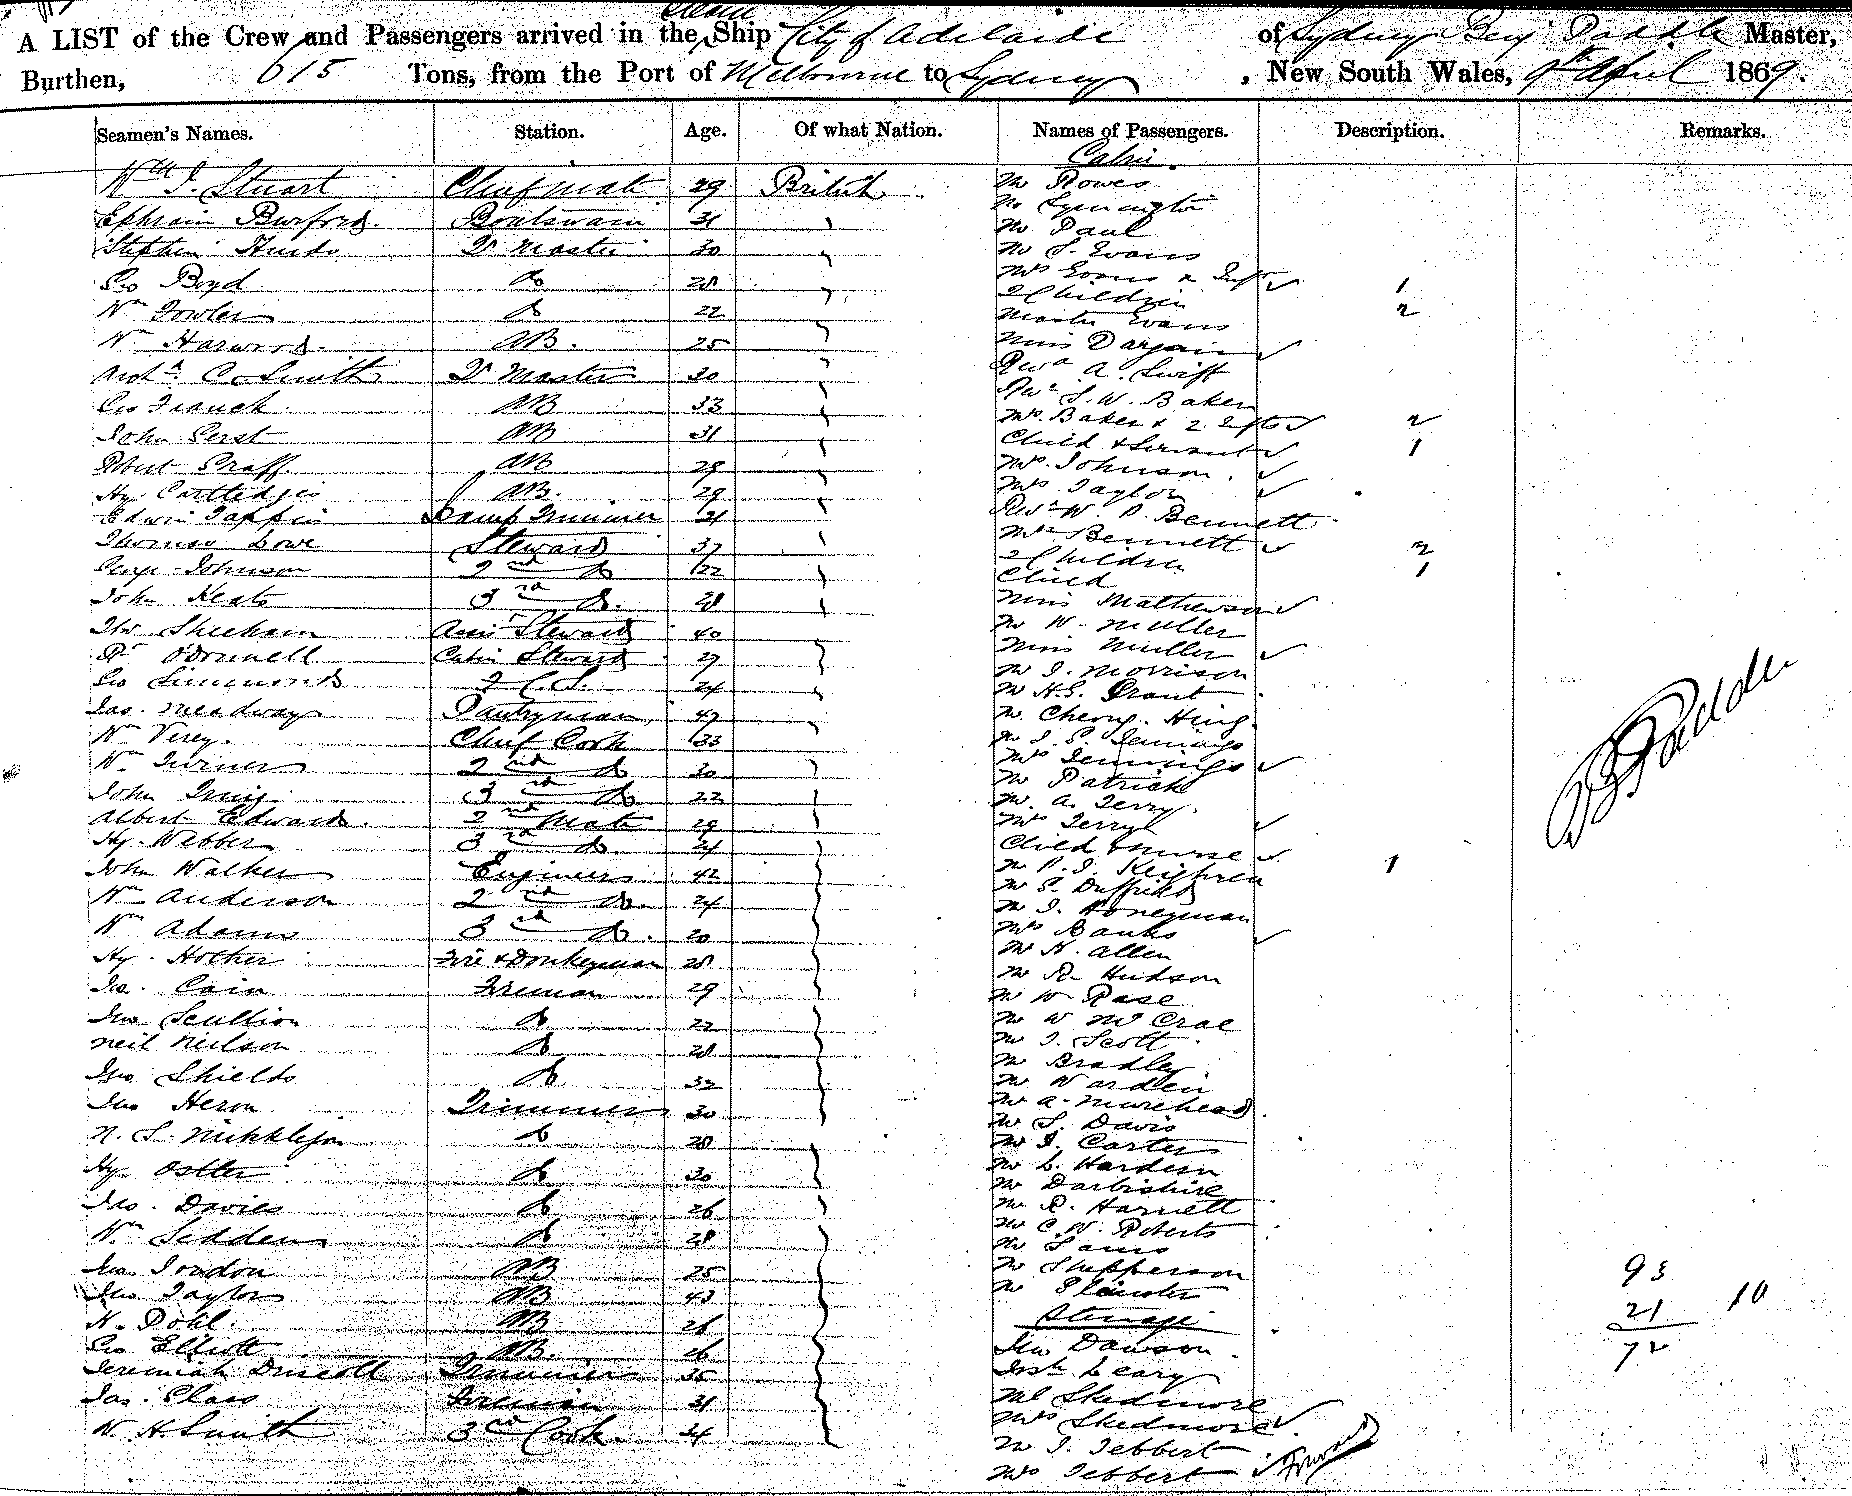 Steam
A LIST of the Crew and Passengers arrived in the Ship City of Adelaide of Sydney Benj Paddle Master,
Burthen, 615 Tons, from the Port of Melbourne to Sydney, New South Wales, 9th April 1869.
Seamen's Names. Station. Age. Of what Nation. Names of Passengers. Description. Remarks.
Cabin.
Wm J. Stuart Chief mate 29 British
Ephraim Burford Boatswain 31
Stephen Qr Master 30
Geo Boyd Do 28
Wm Fowler Do 22
Wm Harwood AB. 25
Archd C. Smith Qr Master 30
Geo Franck AB 33
John Gerst AB 31
Robert Graff AB 29
Hy. Cartledge AB. 29
Edwin Tappin Lamp Trimmer 21
Thomas Lowe Steward 37
George Johnson 2nd Do 22
John Keats 3rd Do. 28
Sheehan Steward 40
O'Donnell Cabin Steward 27
Geo Simmonds 2 C.S. 24
Jas. Meadway Pantryman 47
Wm Verey. Chief Cook 33
Wm Turner 2nd Do 30
John 3rd Do 22
Albert Edwards 2nd Mate 29
Hy. Webber 3rd Do. 24
John Walker Engineer 42
Wm Anderson 2nd Do. 24
Wm Adams 3rd Do. 20
Hy. Hother Fire & Donkeyman 28
Cain Fireman 29
Jno Scullion Do 22
Neil Neilson Do 28
Jno Shields Do 32
Jno Heron Trimmer 30
N. S. Nicklejon Do 28
Hy Ostler Do 30
Jno. Davies Do 26
Wm Seddens Do 28
Jno Jordon AB 25
Jno Taylor AB 43
H. Pohl. AB 26
Geo Elliott AB. 26
Jeremiah Driscoll Trimmer 35
Jas. Glass Fireman 31
W. H Smith 3rd Cook. 24
Mr Rowes
Mr Symington
Mr Paul
Mr S. Evans
Mrs Evans & Inft 1
2 Children 2
Master Evans
Miss Dargain
Revd A. Swift
Revd S. W. Baker
Mrs. Baker & 2 Infts 2
Child & Servant 1
Mrs. Johnson.
Mrs Taylor
Revd W. P. Bennett
Mrs Bennett
2 Children 2
Child 1
Miss Mathewson
Mr W. Muller
Miss Muller
Mr J. Morrison
Mr H.E. Grant
Mr. Cheong Hing.
Mr J. S. Jennings
Mrs Jennings
Mr Patrick
Mr. A. Terry.
Mrs Terry
Child & nurse 1
Mr P. J. Keighren
Mr S. Duffield
Mr J. Honeyman
Mrs Banks
Mr H. Allen
Mr R. Hudson
Mr W Rase
Mr W McCrae
Mr J. Scott
Mr Bradley
Mr Warden
Mr A. Muirhead.
Mr S. Davis
Mr J. Carter
Mr L. Hardern
Mr Darbishire
Mr R. Harnett
Mr C W. Roberts
Mr Sams
Mr Shepperson
Mr
Steerage
Jno Dawson.
Leary
Mr Skedmore
Mrs Skedmore
Mr J. Tebbert
Mrs Tebbert
B Paddle
93
21 10
72